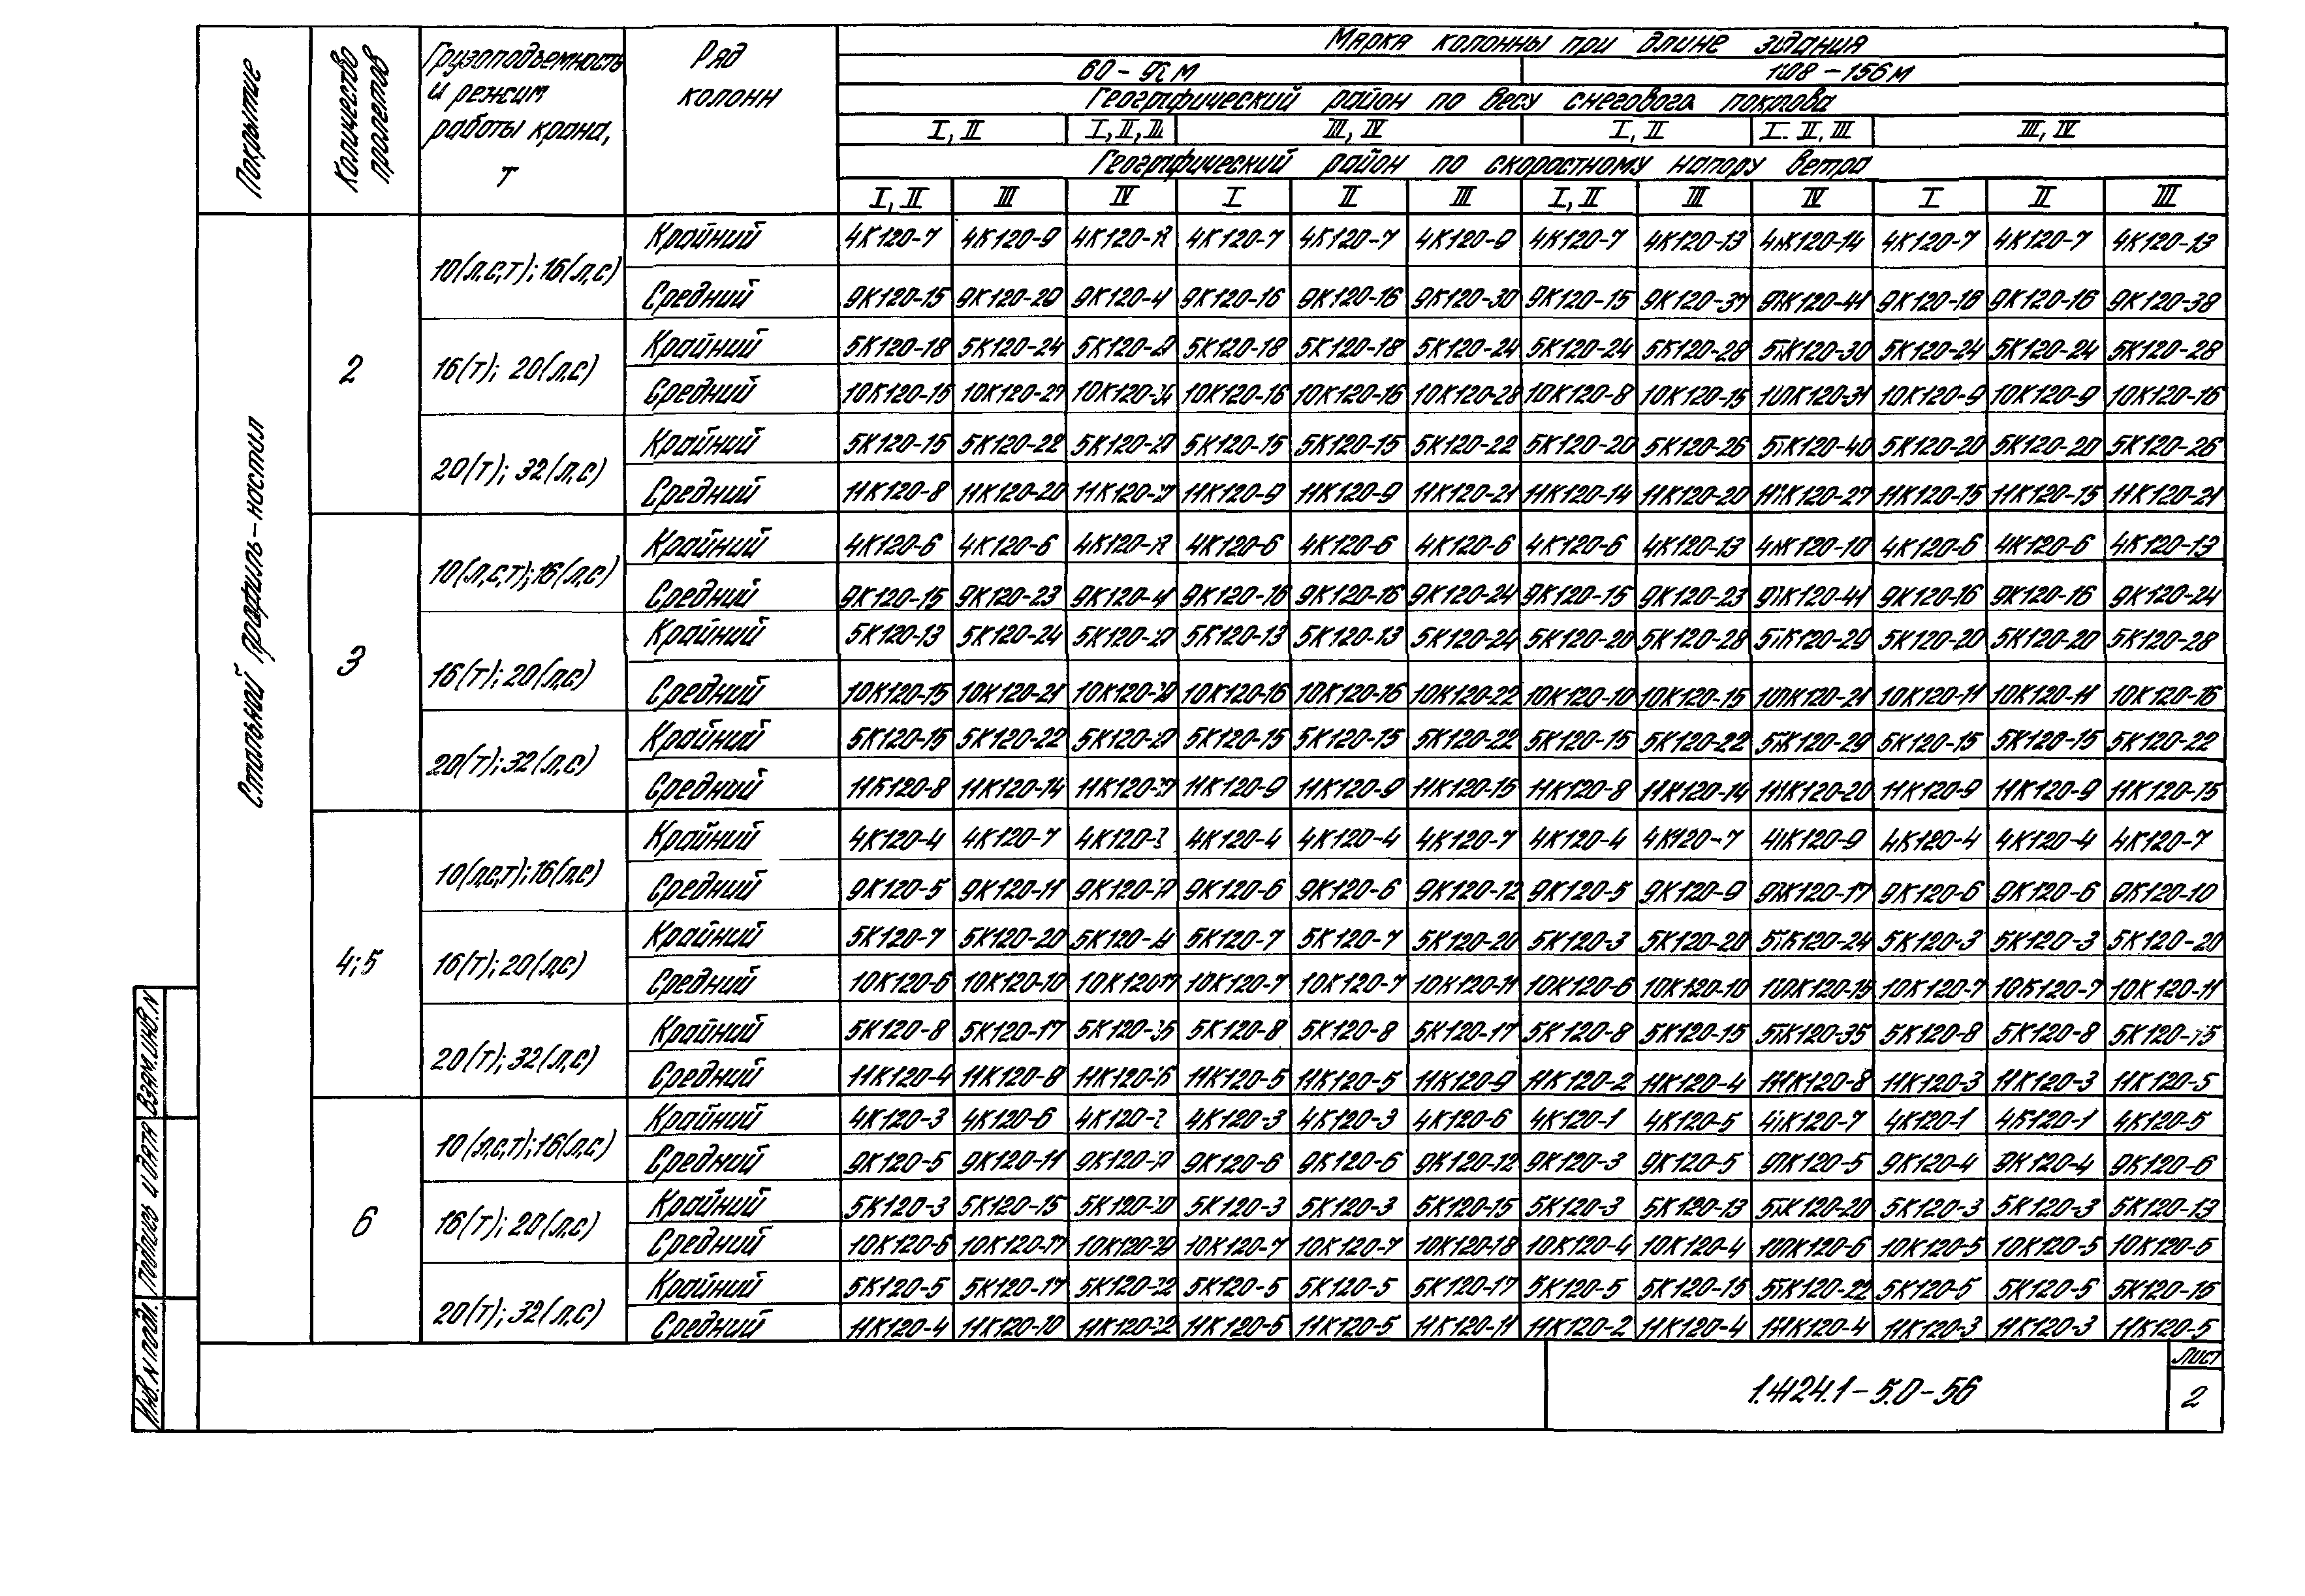 Покрытие
Количество пролетов
Грузоподъемность и режим работы крана, т
Ряд колонн
Марка колонны при длине здания
60- м 108-156 м
Географический район по весу снегового покрова
I, II I, II, III III, IV I, II I. II, III III, IV
Географический район по скоростному напору ветра
I, II III IV I II III I, II III IV I II III
Стальной профиль-настил
2
10(л,с,т); 16(л,с)
Крайний 4К120-7 4К120-9 4К120-7 4К120-7 4К120-9 4К120-7 4К120-13 4К120-14 4К120-7 4К120-7 4К120-13
Средний 9К120-15 9К120-29 9К120-16 9К120-16 9К120-30 9К120-15 9К120-37 9К120-41 9К120-16 9К120-16 9К120-38
16(т); 20(л,с)
Крайний 5К120-18 5К120-24 5К120-18 5К120-18 5К120-24 5К120-24 5К120-28 5К120-30 5К120-24 5К120-24 5К120-28
Средний 10К120-15 10К120-27 10К120-16 10К120-16 10К120-28 10К120-8 10К120-15 10К120-31 10К120-9 10К120-9 10К120-16
20(т); 32(л,с)
Крайний 5К120-15 5К120-22 5К120-15 5К120-15 5К120-22 5К120-20 5К120-26 5К120-40 5К120-20 5К120-20 5К120-26
Средний 11К120-8 11К120-20 11К120-9 11К120-9 11К120-21 11К120-14 11К120-20 11К120-27 11К120-15 11К120-15 11К120-21
3
10(л,с,т); 16(л,с)
Крайний 4К120-6 4К120-6 4К120-6 4К120-6 4К120-6 4К120-6 4К120-13 4К120-10 4К120-6 4К120-6 4К120-13
Средний 9К120-15 9К120-23 9К120-16 9К120-16 9К120-24 9К120-15 9К120-23 9К120-41 9К120-16 9К120-16 9К120-24
16(т); 20(л,с)
Крайний 5К120-13 5К120-24 5К120-13 5К120-13 5К120-24 5К120-20 5К120-28 5К120-29 5К120-20 5К120-20 5К120-28
Средний 10К120-15 10К120-21 10К120-16 10К120-16 10К120-22 10К120-10 10К120-15 10К120-21 10К120-11 10К120-11 10К120-16
20(т); 32(л,с)
Крайний 5К120-15 5К120-22 5К120-15 5К120-15 5К120-22 5К120-15 5К120-22 5К120-29 5К120-15 5К120-15 5К120-22
Средний 11К120-8 11К120-14 11К120-9 11К120-9 11К120-15 11К120-8 11К120-14 11К120-20 11К120-9 11К120-9 11К120-15
4; 5
10(л,с,т); 16(л,с)
Крайний 4К120-4 4К120-7 4К120-4 4К120-4 4К120-7 4К120-4 4К120-7 4К120-9 4К120-4 4К120-4 4К120-7
Средний 9К120-5 9К120-11 9К120-6 9К120-6 9К120-12 9К120-5 9К120-9 9К120-17 9К120-6 9К120-6 9К120-10
16(т); 20(л,с)
Крайний 5К120-7 5К120-20 5К120-7 5К120-7 5К120-20 5К120-3 5К120-20 5К120-24 5К120-3 5К120-3 5К120-20
Средний 10К120-6 10К120-10 10К120-7 10К120-7 10К120-11 10К120-6 10К120-10 10К120-15 10К120-7 10К120-7 10К120-11
20(т); 32(л,с)
Крайний 5К120-8 5К120-17 5К120-8 5К120-8 5К120-17 5К120-8 5К120-15 5К120-35 5К120-8 5К120-8 5К120-15
Средний 11К120-4 11К120-8 11К120-5 11К120-5 11К120-9 11К120-2 11К120-4 11К120-8 11К120-3 11К120-3 11К120-5
6
10(л,с,т); 16(л,с)
Крайний 4К120-3 4К120-6 4К120-3 4К120-3 4К120-6 4К120-1 4К120-5 4К120-7 4К120-1 4К120-1 4К120-5
Средний 9К120-5 9К120-11 9К120-6 9К120-6 9К120-12 9К120-3 9К120-5 9К120-5 9К120-4 9К120-4 9К120-6
16(т); 20(л,с)
Крайний 5К120-3 5К120-15 5К120-3 5К120-3 5К120-15 5К120-3 5К120-13 5К120-20 5К120-3 5К120-3 5К120-13
Средний 10К120-6 10К120-17 10К120-7 10К120-7 10К120-18 10К120-4 10К120-4 10К120-6 10К120-5 10К120-5 10К120-5
20(т); 32(л,с)
Крайний 5К120-5 5К120-17 5К120-5 5К120-5 5К120-17 5К120-5 5К120-15 5К120-22 5К120-5 5К120-5 5К120-15
Средний 11К120-4 11К120-10 11К120-5 11К120-5 11К120-11 11К120-2 11К120-4 11К120-4 11К120-3 11К120-3 11К120-5
Взам.инв.N
Подпись и дата
Инв. N подл.
1.424.1-5.0-56
Лист
2